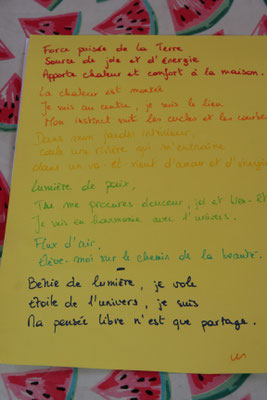 Force puisée de la Terre
Source de joie et d'énergie
Apporte chaleur et confort à la maison.
La chaleur est montée
Je suis au centre, je suis le lien
Mon instinct suit les cycles et les courbes
Dans mon jardin intérieur,
coule une rivière qui m'entraîne
dans un va-et-vient d'amour et d'énergie
Lumière de paix,
Tu me procures douceur, joie et bien-êt
Je suis en harmonie avec l'univers.
Flux d'air,
élève-moi sur le chemin de la beauté.
Bénie de lumière, je vole
étoile de l'univers, je suis
Ma pensée libre n'est que partage.